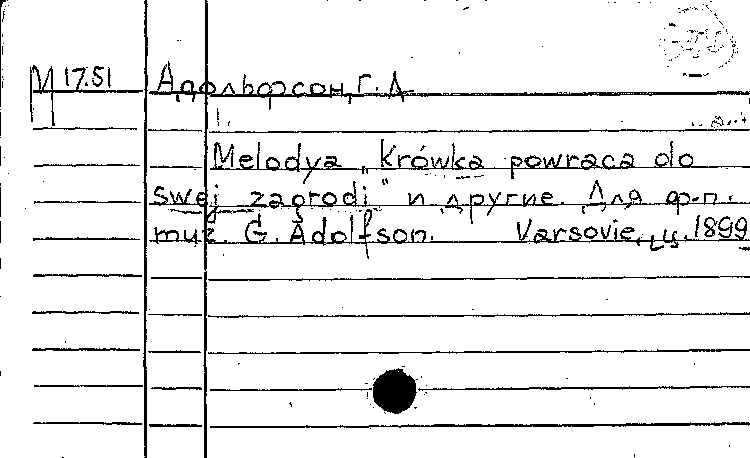 М 17.51 Адольфсон, Г. А
Melodya „Krówka powraca do
swej zagrodi" и другие. Для ф-п.
muz. G. Adolfson. Varsovie, ц. 1899